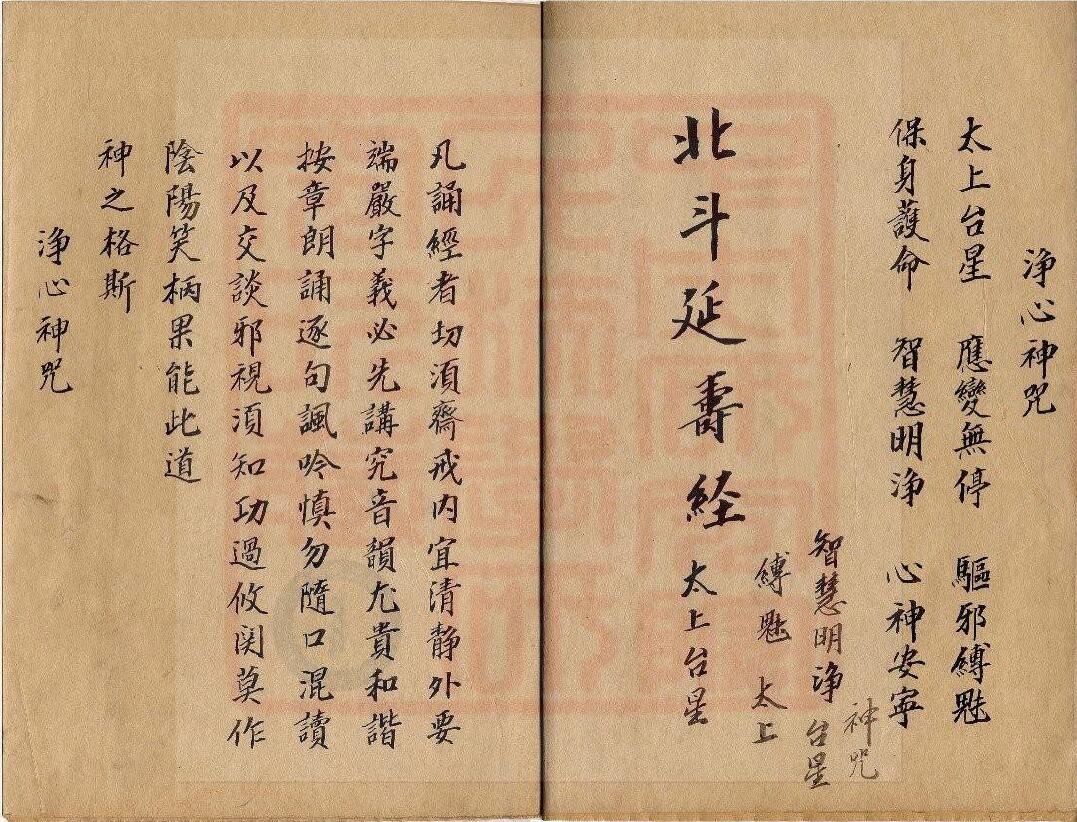 淨心神咒
太上台星　應變無停　驅邪縛魅
保身護命　智慧明淨　心神安寧
神咒
智慧明淨　台星
縛魅　太上
北斗延壽経　太上台星
凡誦經者切須齋戒内宜清静外要
端嚴字義必先講究音韻尤貴和諧
按章朗誦逐句諷吟慎勿隨口混讀
以及交談邪視須知功過攸関莫作
陰陽笑柄果能此道
神之格斯
淨心神咒